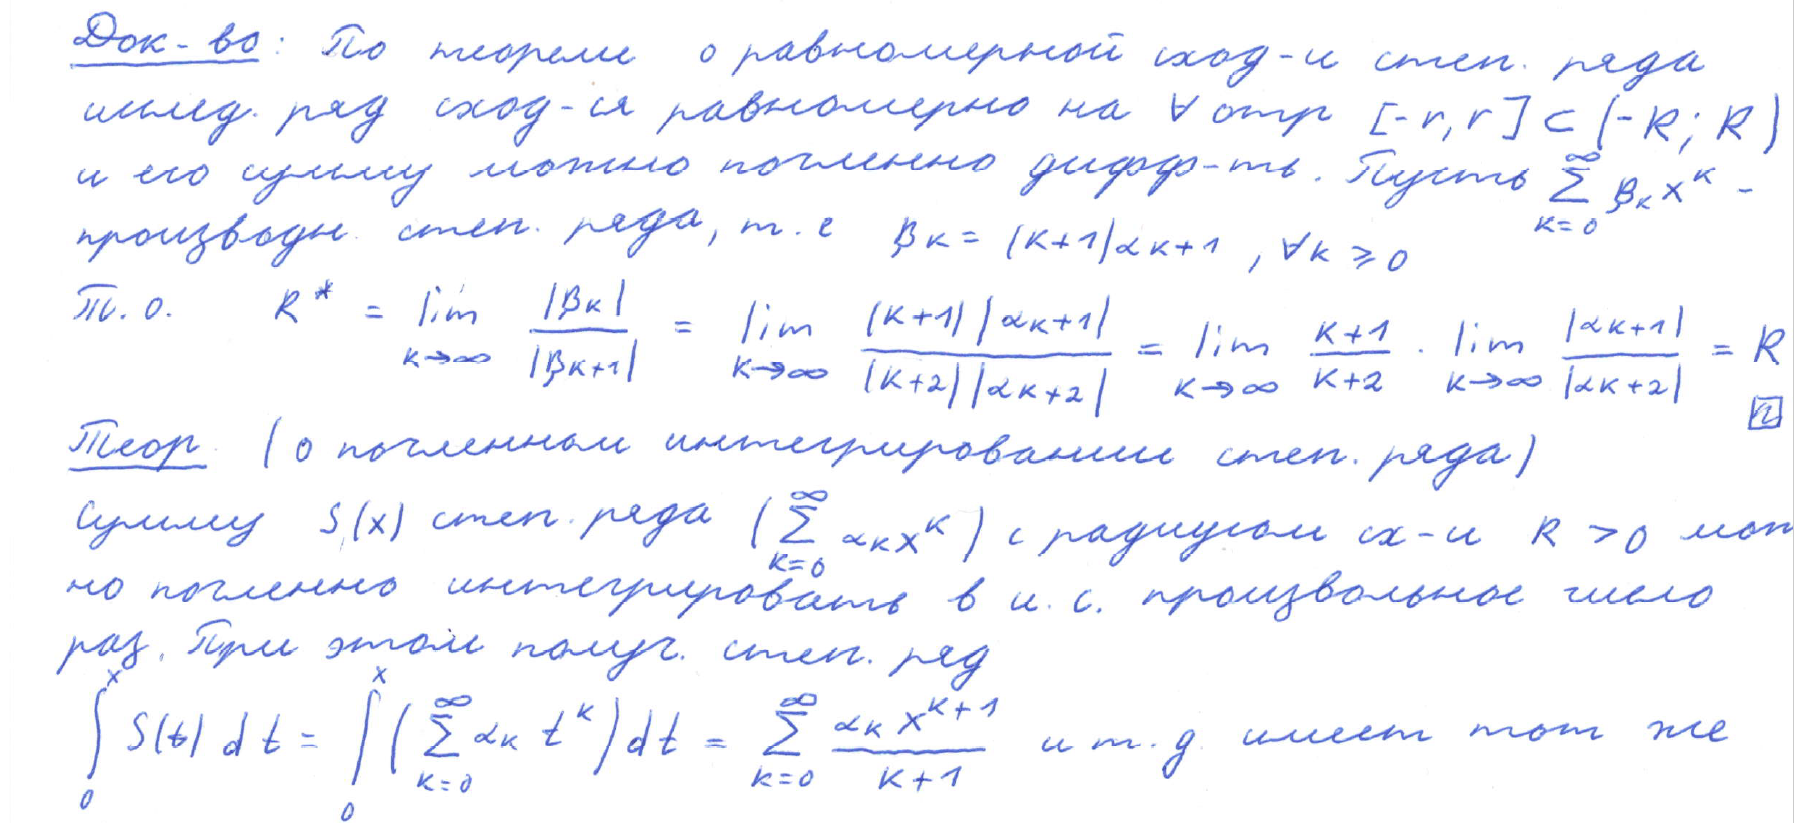 Док-во: По теореме о равномерной сход-и степ. ряда
исслед. ряд сход-ся равномерно на ∀ отр [-r, r] ⊂ (-R; R)
и его сумму можно почленно дифф-ть. Пусть ∑_{k=0}^{∞} β_k x^k -
производн. степ. ряда, т. е β_k = (k+1)α_{k+1}, ∀k ≥ 0
Т. о. R* = lim_{k→∞} |β_k|/|β_{k+1}| = lim_{k→∞} (k+1)|α_{k+1}|/(k+2)|α_{k+2}| = lim_{k→∞} (k+1)/(k+2) · lim_{k→∞} |α_{k+1}|/|α_{k+2}| = R
Теор. (о почленном интегрировании степ. ряда)
Сумму S(x) степ. ряда (∑_{k=0}^{∞} α_k x^k) с радиусом сх-и R > 0 мож
но почленно интегрировать в и. с. произвольное число
раз. При этом получ. степ. ряд
∫_0^x S(t) dt = ∫_0^x (∑_{k=0}^{∞} α_k t^k) dt = ∑_{k=0}^{∞} α_k x^{k+1}/(k+1) и т. д. имеет тот же